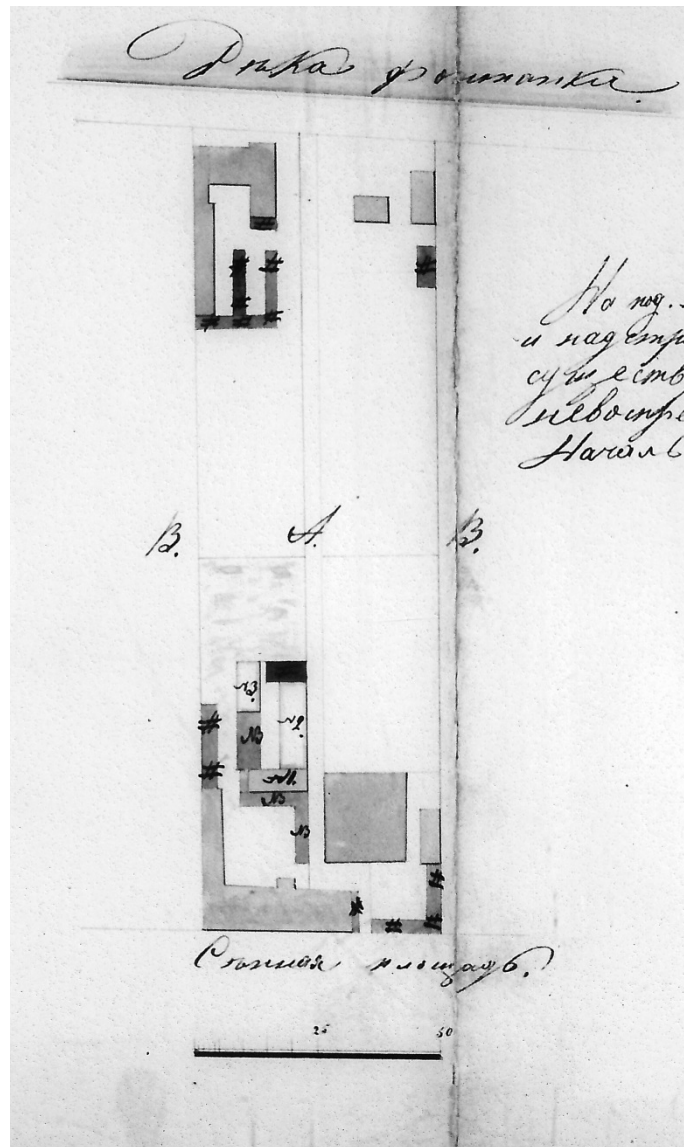 Рѣка фонтанка.
На под.
и надстр
сущеcтв
невоспре
Началь
В. А. В.
№3.
№2.
№
№1.
№
№
Сѣнная площадь.
25 50